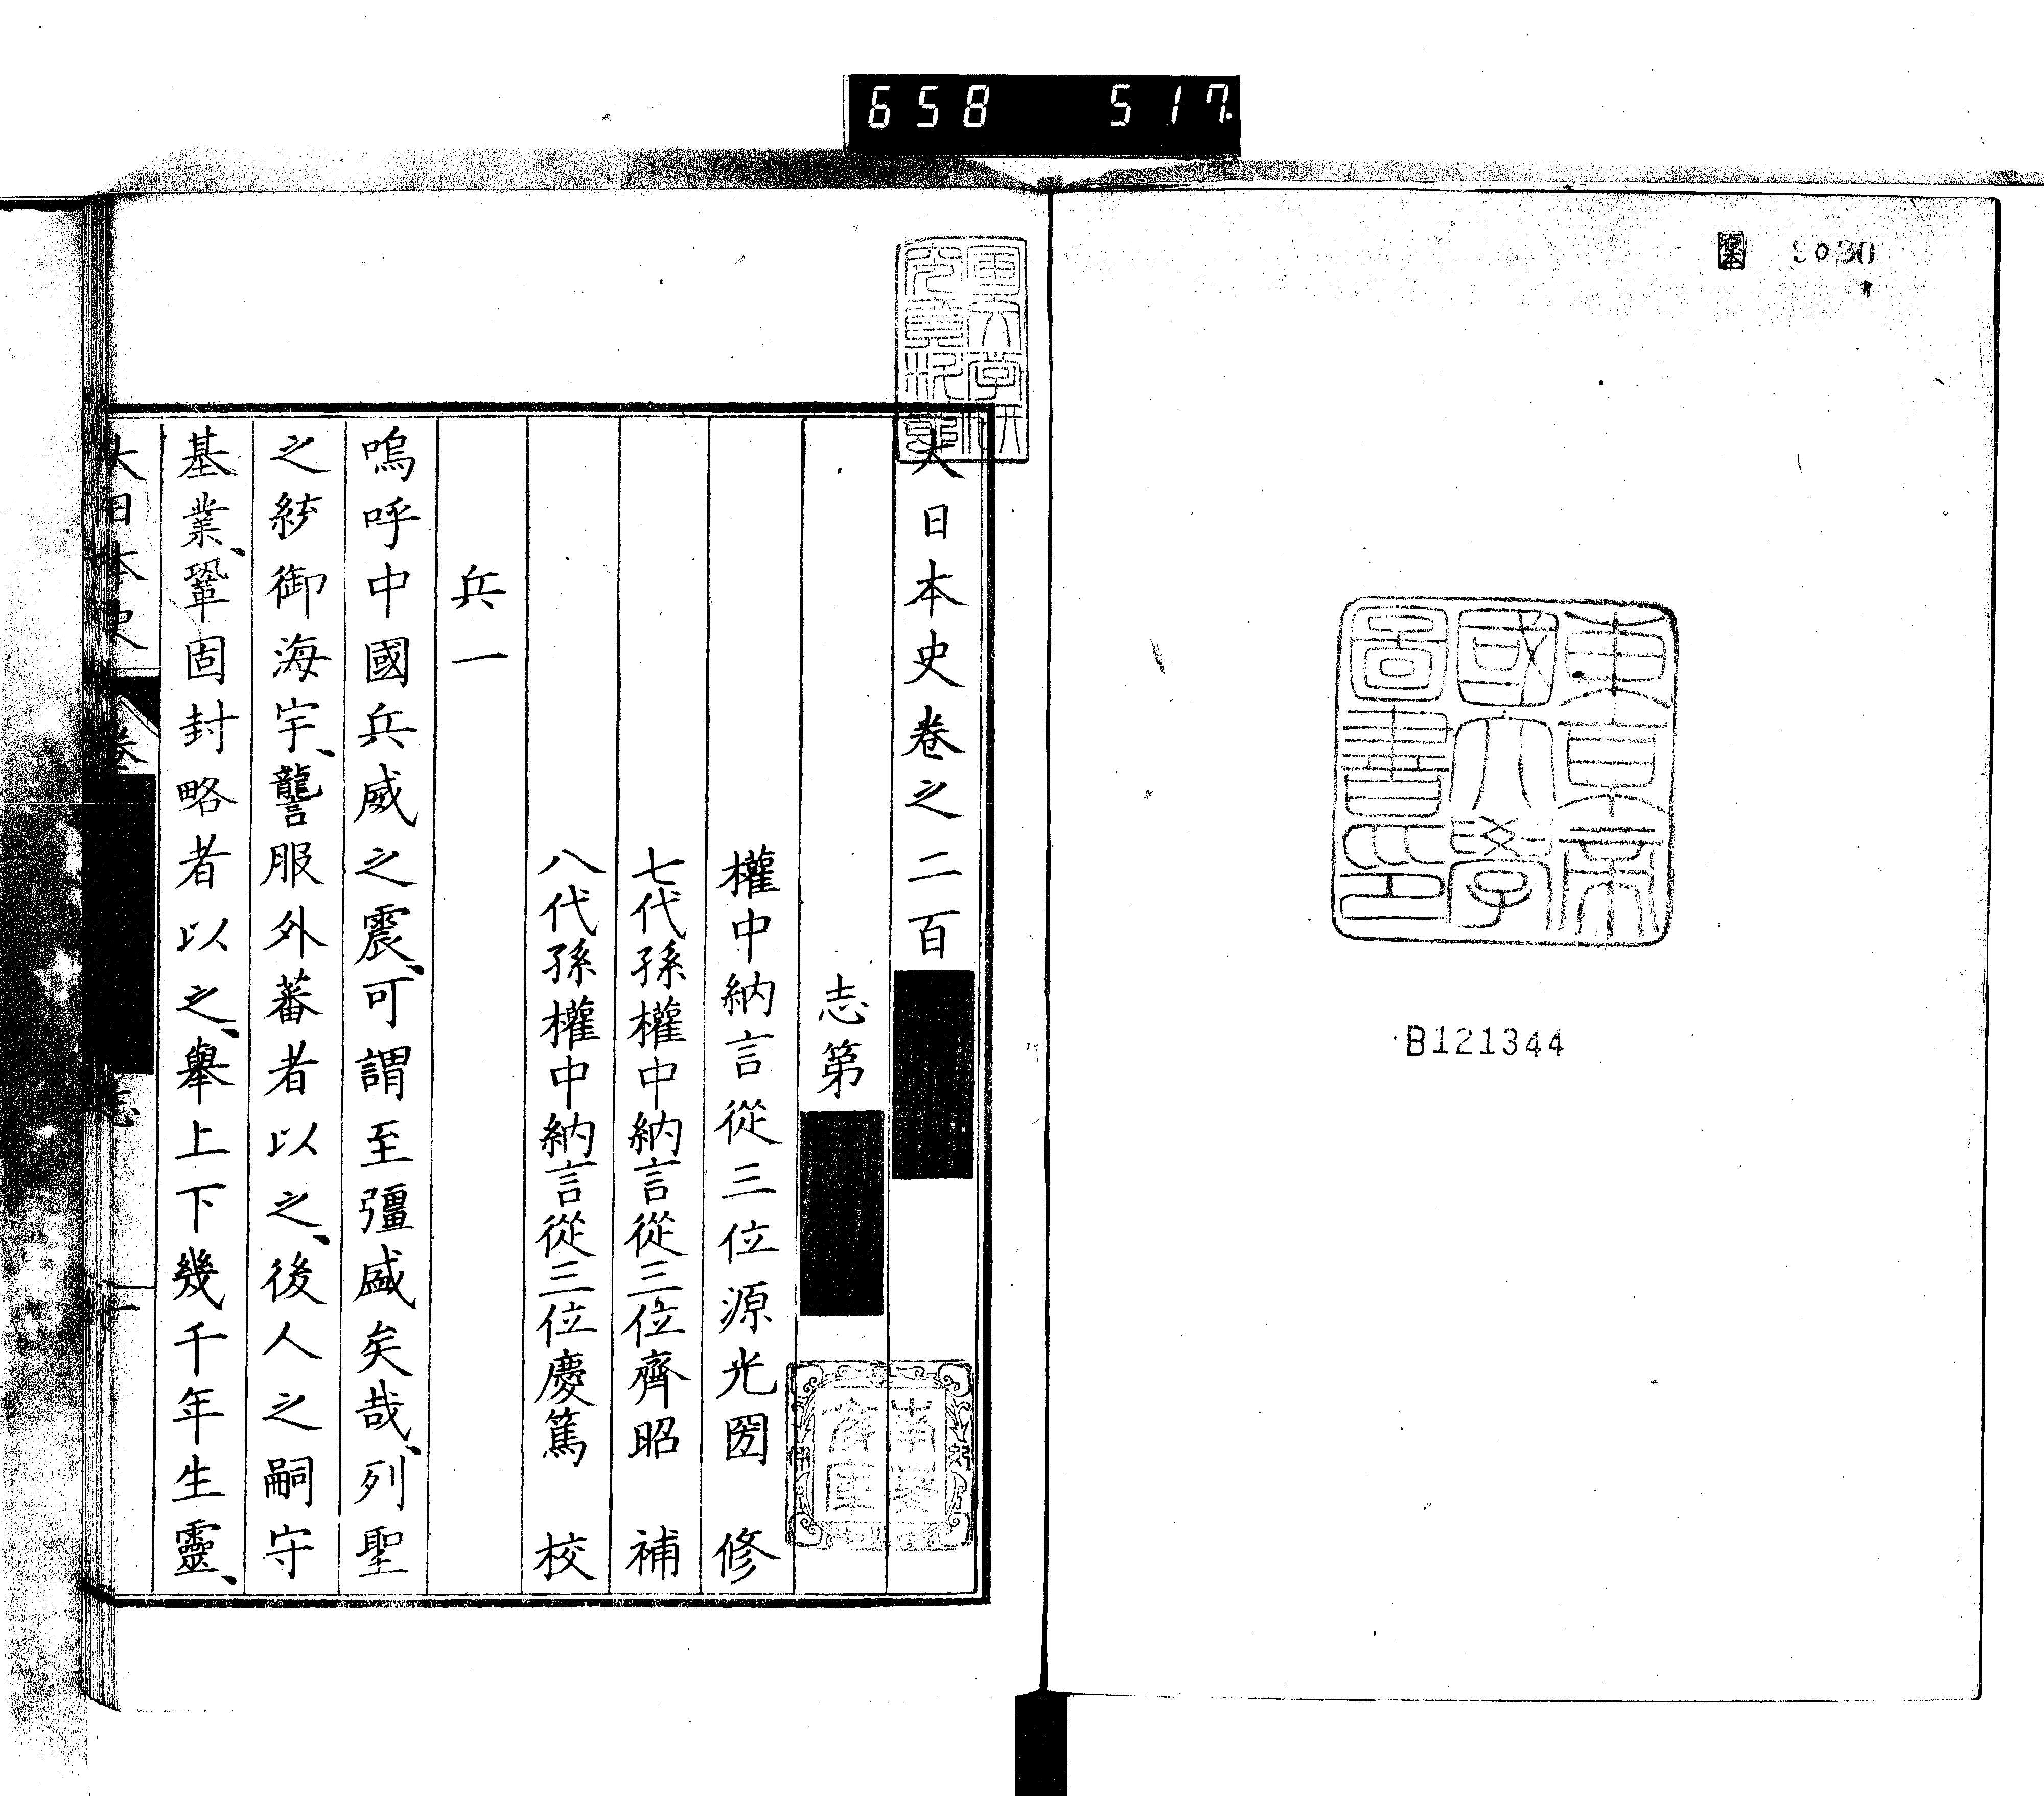 658 517
東京帝
國大學
圖書印
B121344
大日本史卷之二百
志第
權中納言從三位源光圀 修
七代孫權中納言從三位齊昭 補
八代孫權中納言從三位慶篤 校
兵一
嗚呼中國兵威之震、可謂至彊盛矣哉、列聖
之統御海宇、讋服外蕃者以之、後人之嗣守
基業、鞏固封略者以之、舉上下幾千年生靈、
大日本史 卷 志 一